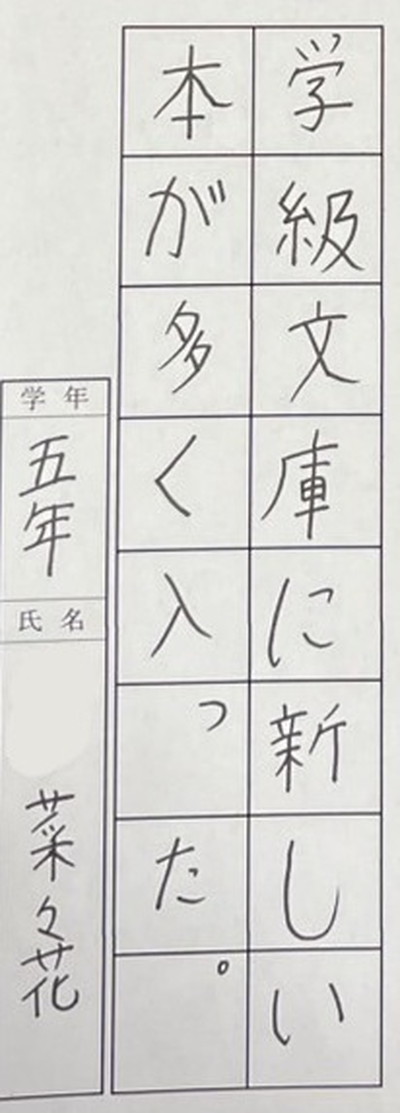 学級文庫に新しい
本が多く入った。
学年
五年
氏名
菜々花